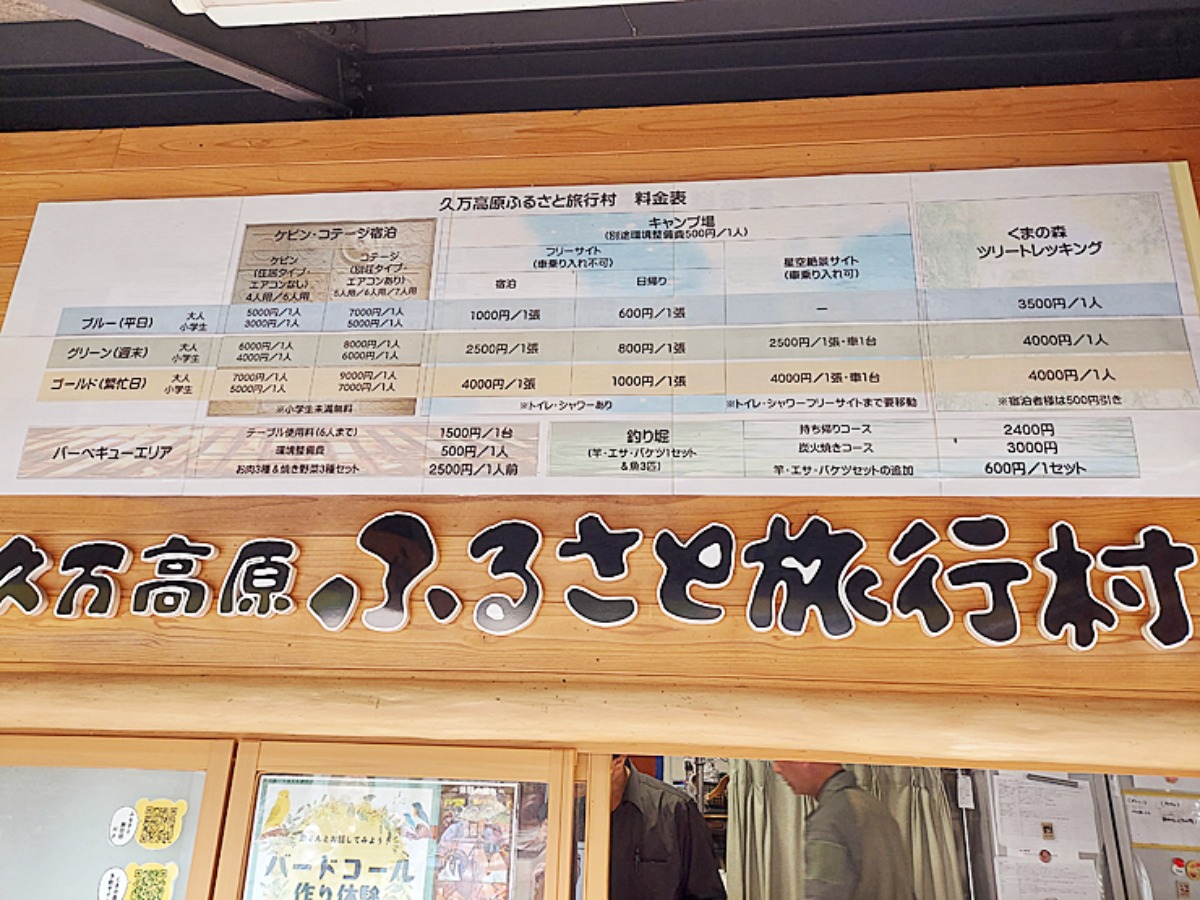 久万高原ふるさと旅行村 料金表
ケビン・コテージ宿泊
ケビン
(住居タイプ・
エアコンなし)
4人用/6人用
コテージ
(別荘タイプ・
エアコンあり)
5人用/6人用/7人用
キャンプ場
(別途環境整備費500円/1人)
フリーサイト
(車乗り入れ不可)
宿泊
日帰り
星空絶景サイト
(車乗り入れ可)
くまの森
ツリートレッキング
ブルー(平日)
大人 5000円/1人 7000円/1人
小学生 3000円/1人 5000円/1人
1000円/1張 600円/1張 ー 3500円/1人
グリーン(週末)
大人 6000円/1人 8000円/1人
小学生 4000円/1人 6000円/1人
2500円/1張 800円/1張 2500円/1張・車1台 4000円/1人
ゴールド(繁忙日)
大人 7000円/1人 9000円/1人
小学生 5000円/1人 7000円/1人
4000円/1張 1000円/1張 4000円/1張・車1台 4000円/1人
※小学生未満無料
※トイレ・シャワーあり
※トイレ・シャワーフリーサイトまで要移動
※宿泊者様は500円引き
バーベキューエリア
テーブル使用料(6人まで) 1500円/1台
環境整備費 500円/1人
お肉3種&焼き野菜3種セット 2500円/1人前
釣り堀
(竿・エサ・バケツ1セット
&魚3匹)
持ち帰りコース 2400円
炭火焼きコース 3000円
竿・エサ・バケツセットの追加 600円/1セット
久万高原ふるさと旅行村
バードコール
作り体験